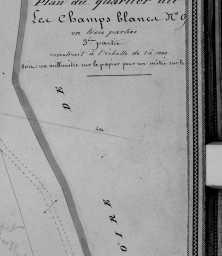 Plan du quartier dit
Les Champs blancs N° 9
en trois parties
3me partie
construit à l'échelle de 1 à 1000
un millimètre sur le papier pour un mètre sur le
DE
OIRE